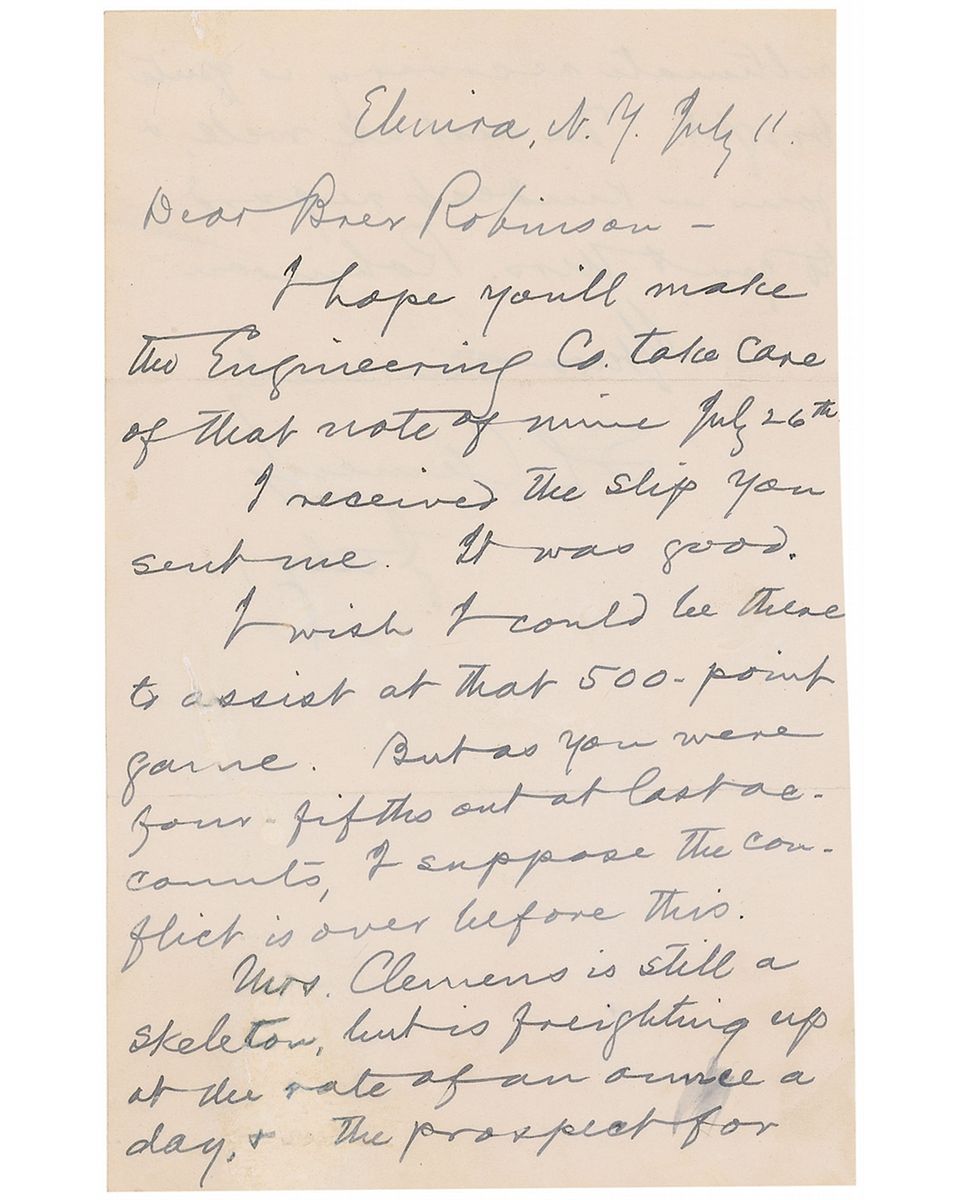 Elmira, N. Y. July 11.
Dear Brer Robinson –
I hope you'll make
the Engineering Co. take care
of that note of mine July 26th
I received the slip you
sent me. It was good.
I wish I could be there
to assist at that 500-point
game. But as you were
four-fifths out at last ac-
counts, I suppose the con-
flict is over before this.
Mrs. Clemens is still a
skeleton, but is freighting up
at the rate of an ounce a
day, & the prospect for